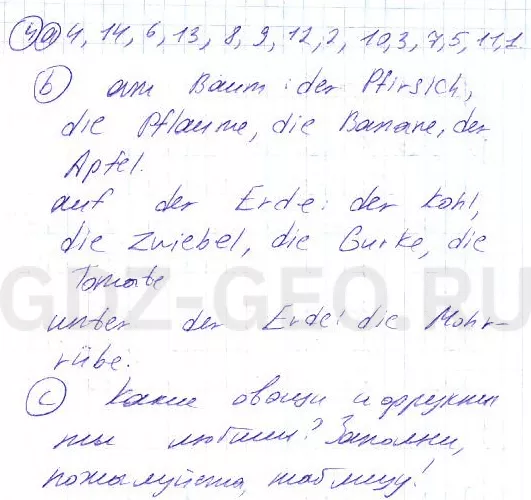 4 a 4, 14, 6, 13, 8, 9, 12, 2, 10, 3, 7, 5, 11, 1.
b am Baum: der Pfirsich,
die Pflaume, die Banane, der
Apfel.
auf der Erde: der Kohl,
die Zwiebel, die Gurke, die
Tomate
GDZ-GEO.RU
unter der Erde: die Mohr-
rübe.
c Какие овощи и фрукты
ты любишь? Заполни,
пожалуйста, таблицу!